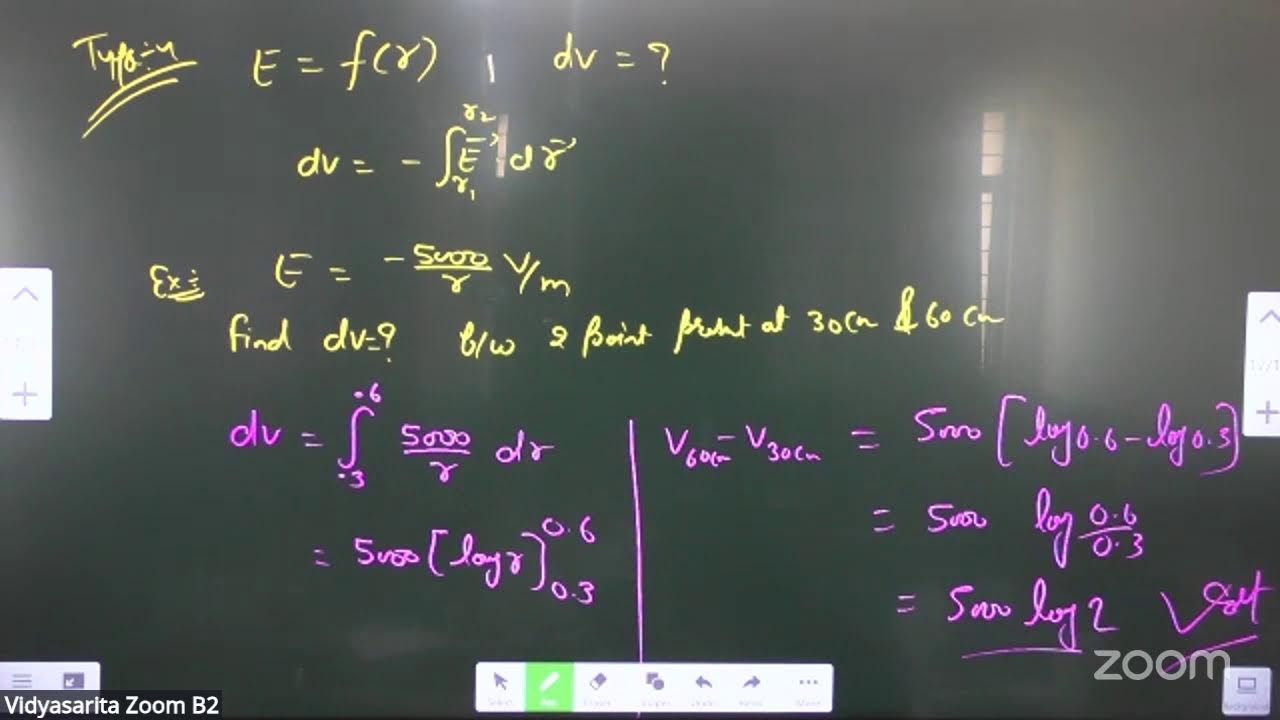 Type-4 E = f(r) , dv = ?
dv = - ∫_{r₁}^{r₂} E⃗ dr⃗
Ex:- E = - 5000/r V/m
find dv=? b/w 2 point present at 30cm & 60 cm
dv = ∫_{.3}^{.6} 5000/r dr
= 5000 [log r]_{0.3}^{0.6}
V_{60cm} - V_{30cm} = 5000 [log 0.6 - log 0.3]
= 5000 log 0.6/0.3
= 5000 log 2 Volt
zoom
Select Pen Eraser Shapes Undo Redo More
Background
Vidyasarita Zoom B2